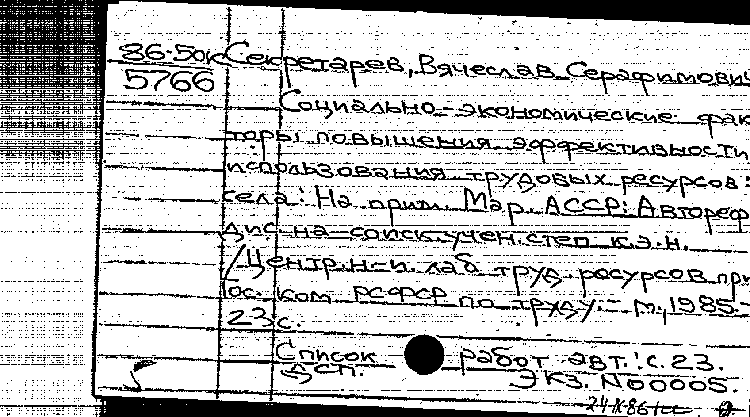 86-50к Секретарев, Вячеслав Серафимович
5766
Социально-экономические фак
торы повышения эффективности
использования трудовых ресурсов
села: На прим. Мар. АССР: Автореф
дис. на соиск. учен. степ. к.э.н.
/Центр. н-и. лаб. труд. ресурсов при
Гос. ком. РСФСР по труду. - М., 1985.
23 с.
Список работ авт.: с. 23.
ДСП.
Экз. N00005.